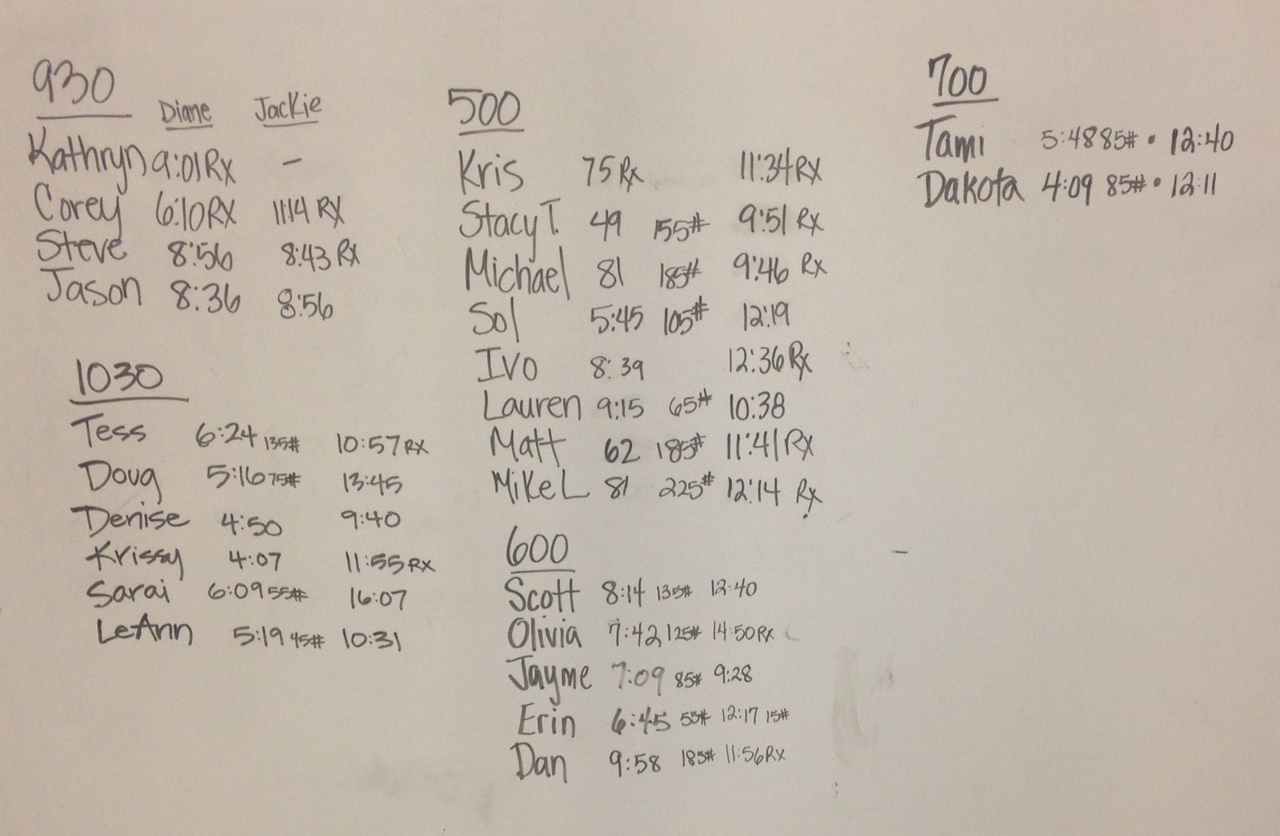 930
Diane Jackie
Kathryn 9:01 Rx –
Corey 6:10 RX 11:14 RX
Steve 8:56 8:43 Rx
Jason 8:36 8:56
1030
Tess 6:24 135# 10:57 RX
Doug 5:16 75# 13:45
Denise 4:50 9:40
Krissy 4:07 11:55 RX
Sarai 6:09 55# 16:07
LeAnn 5:19 45# 10:31
500
Kris 75 Rx 11:34 RX
Stacy T. 49 155# 9:51 Rx
Michael 81 185# 9:46 Rx
Sol 5:45 105# 12:19
Ivo 8:39 12:36 Rx
Lauren 9:15 65# 10:38
Matt 62 185# 11:41 Rx
Mike L 81 225# 12:14 Rx
600
Scott 8:14 135# 12:40
Olivia 7:42 125# 14:50 RX
Jayme 7:09 85# 9:28
Erin 6:45 55# 12:17 15#
Dan 9:58 185# 11:56 RX
700
Tami 5:48 85# • 12:40
Dakota 4:09 85# • 12:11